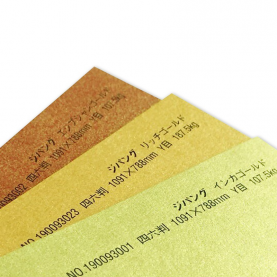 ジパング エジプシャンゴールド
093002 四六判 1091×788mm Y目 107.5kg
ジパング リッチゴールド
NO.190093023 四六判 1091×788mm Y目 187.5kg
ジパング インカゴールド
NO.190093001 四六判 1091×788mm Y目 187.5kg